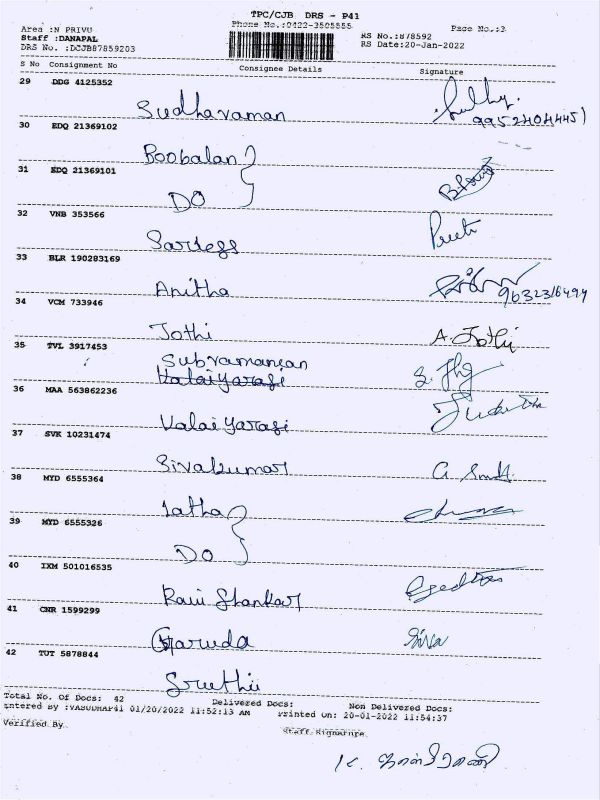 TPC/CJB DRS - P41
Area :N PRIVU Phone No.:0422-3505555 Page No.:3
Staff :DANAPAL RS No.:878592
DRS No. :DCJB87859203 RS Date:20-Jan-2022
S No Consignment No Consignee Details Signature
29 DDG 4125352
Sudhavaman 9952404445)
30 EDQ 21369102
Boobalan
31 EDQ 21369101
DO
32 VNB 353566
33 BLR 190283169
Anitha 9632316494
34 VCM 733946
Jothi A. Jothi
35 TVL 3917453
Subramanian
Kalaiyarasi
36 MAA 563862236
Kalaiyarasi
37 SVK 10231474
Sivakumar
38 MYD 6555364
Latha
39 MYD 6555326
DO
40 IXM 501016535
Ravi Shankar
41 CNR 1599299
Garuda
42 TUT 5878844
Sruthi
Total No. Of Docs: 42 Delivered Docs: Non Delivered Docs:
Entered By :VASUDHAP41 01/20/2022 11:52:13 AM Printed On: 20-01-2022 11:54:37
Verified By Staff Signature